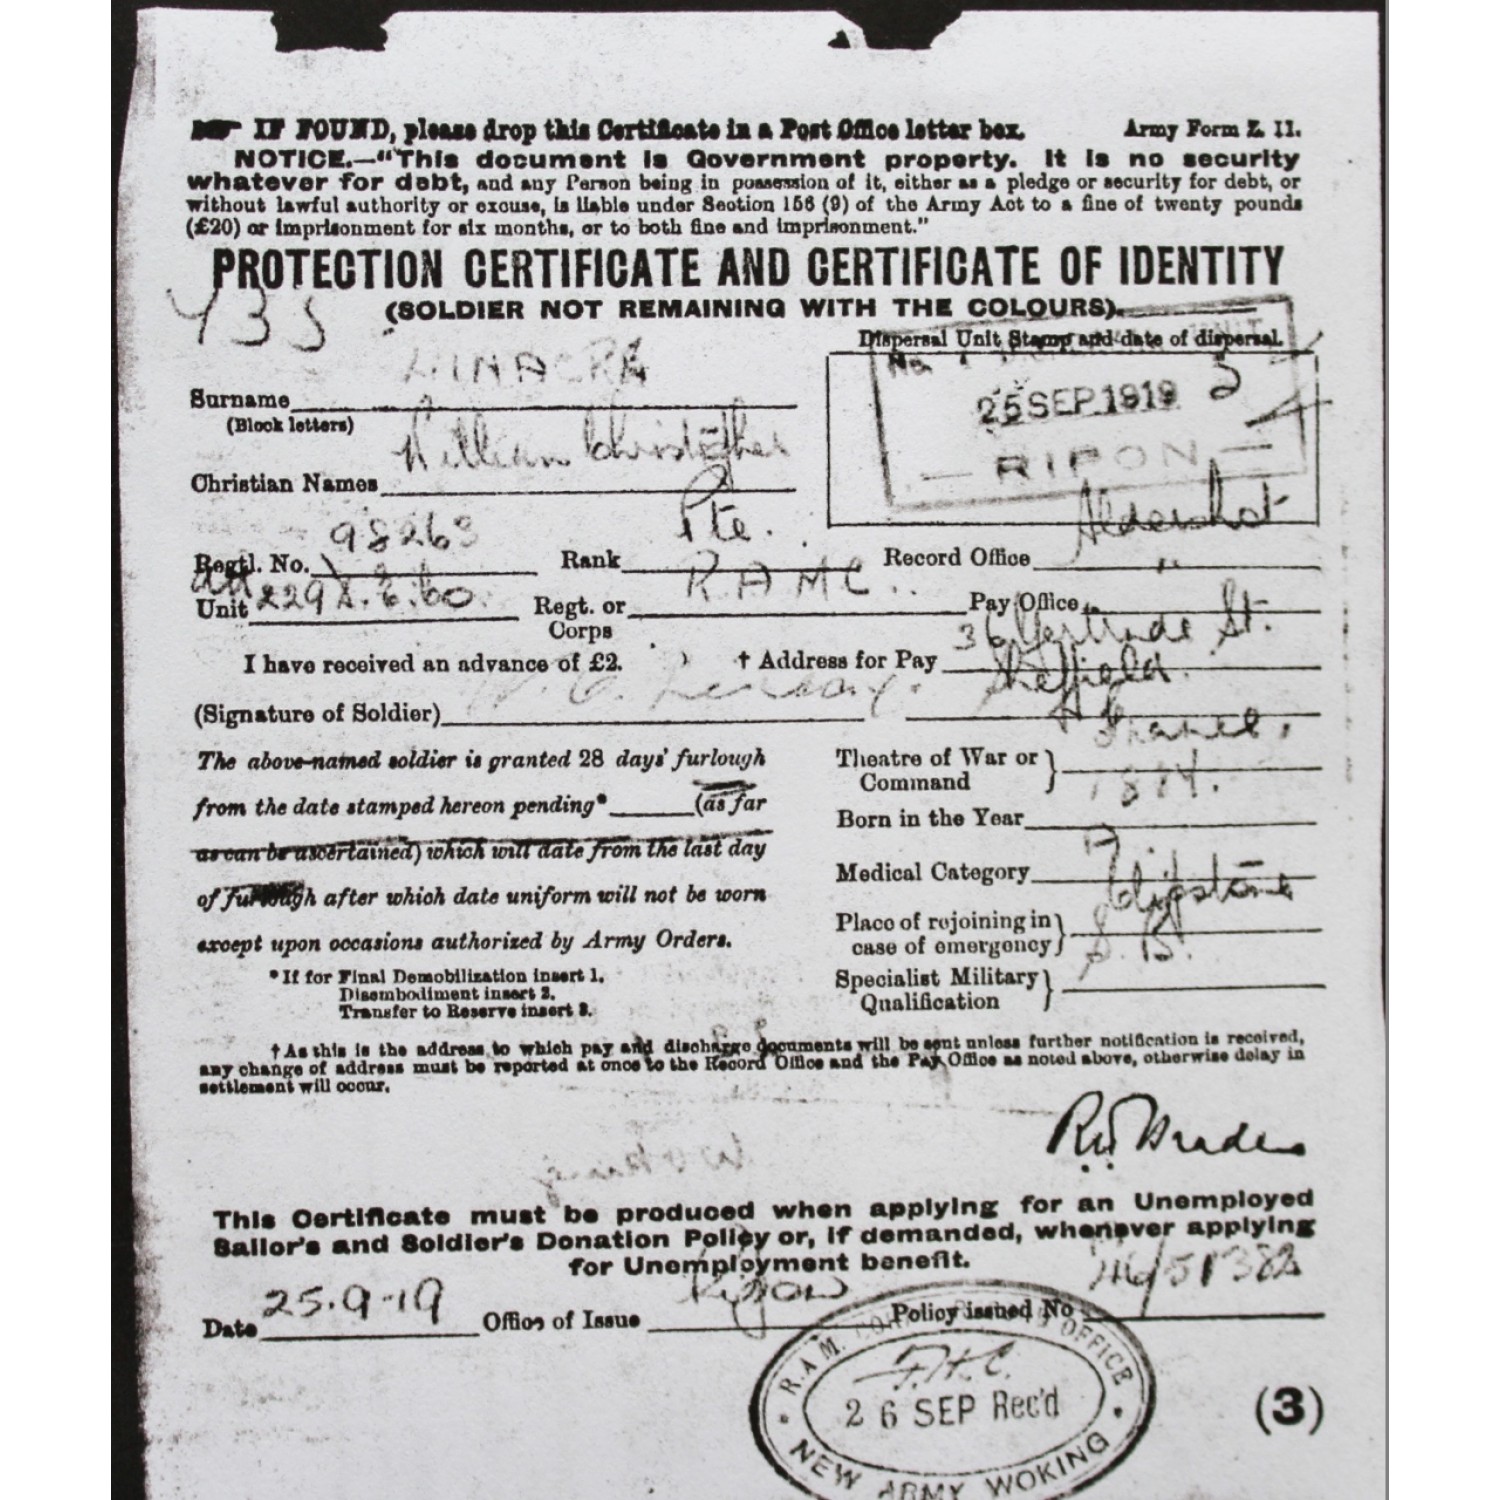 IF FOUND, please drop this Certificate in a Post Office letter box. Army Form Z. 11.
NOTICE.—"This document is Government property. It is no security
whatever for debt, and any Person being in possession of it, either as a pledge or security for debt, or
without lawful authority or excuse, is liable under Section 156 (9) of the Army Act to a fine of twenty pounds
(£20) or imprisonment for six months, or to both fine and imprisonment."
PROTECTION CERTIFICATE AND CERTIFICATE OF IDENTITY
(SOLDIER NOT REMAINING WITH THE COLOURS).
Dispersal Unit Stamp and date of dispersal.
No. 1
25 SEP 1919
RIPON
Surname
(Block letters)
Christian Names William Christopher
Regtl. No. 98263 Rank Pte. Record Office Aldershot
Unit Regt. or Corps R.A.M.C. Pay Office "
I have received an advance of £2. † Address for Pay 36 Gertrude St.
Sheffield.
(Signature of Soldier)
The above-named soldier is granted 28 days' furlough
from the date stamped hereon pending* (as far
as can be ascertained) which will date from the last day
of furlough after which date uniform will not be worn
except upon occasions authorized by Army Orders.
* If for Final Demobilization insert 1.
Disembodiment insert 2.
Transfer to Reserve insert 3.
Theatre of War or Command France.
Born in the Year
Medical Category A
Place of rejoining in case of emergency Clipstone
Specialist Military Qualification S.B.
† As this is the address to which pay and discharge documents will be sent unless further notification is received,
any change of address must be reported at once to the Record Office and the Pay Office as noted above, otherwise delay in
settlement will occur.
This Certificate must be produced when applying for an Unemployed
Sailor's and Soldier's Donation Policy or, if demanded, whenever applying
for Unemployment benefit.
Date 25.9.19 Office of Issue Ripon Policy issued No.
R.A.M. OFFICE
26 SEP Rec'd
NEW ARMY WOKING
(3)